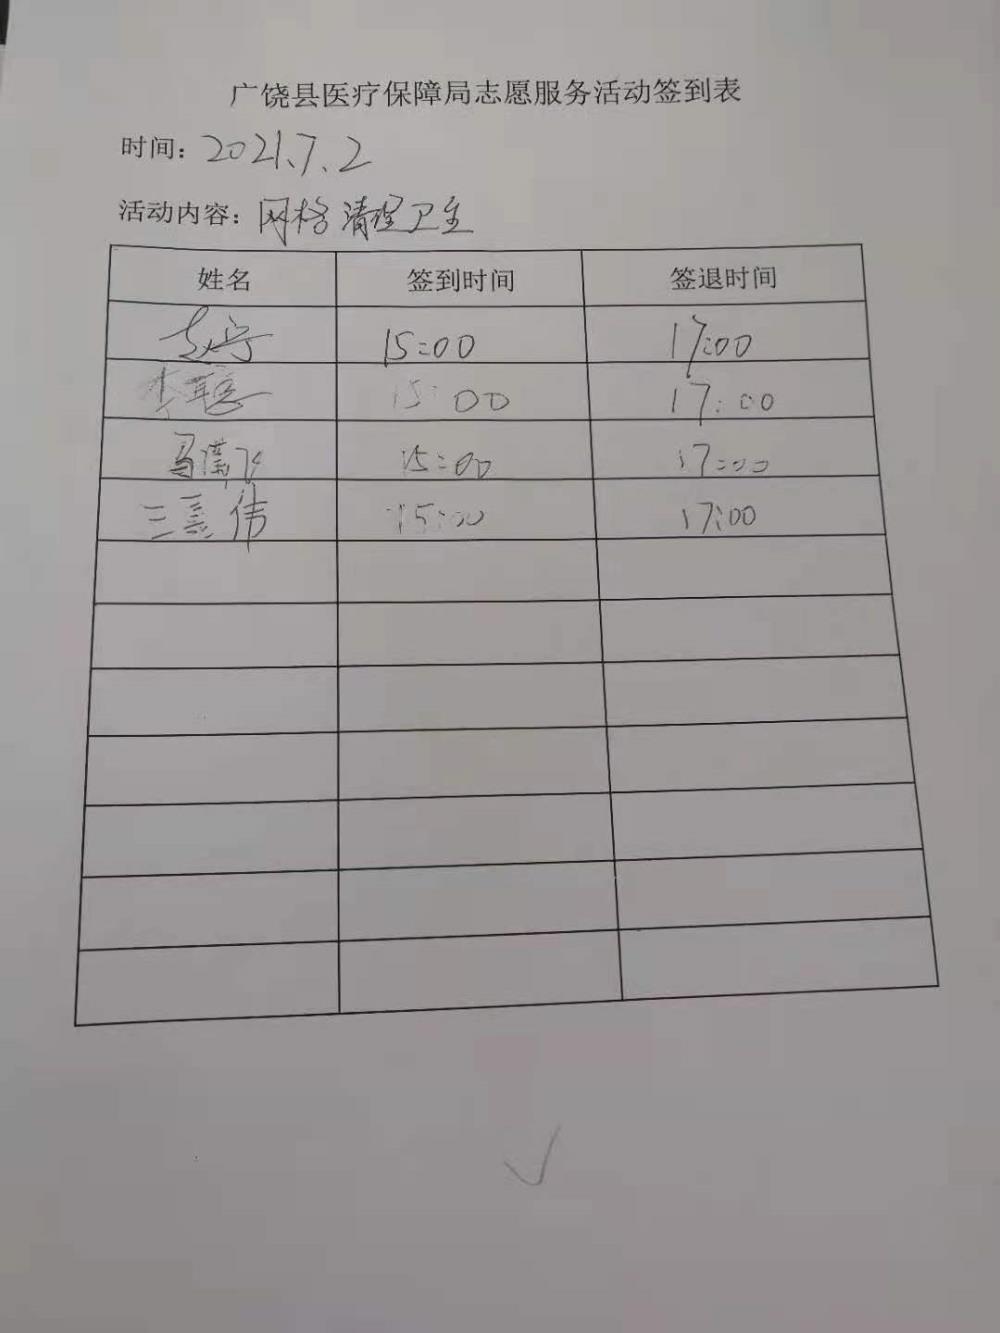 广饶县医疗保障局志愿服务活动签到表
时间：2021.7.2
活动内容：网格清理卫生
姓名 签到时间 签退时间
赵宁 15:00 17:00
李聪 15:00 17:00
马 飞 15:00 17:00
伟 15:00 17:00